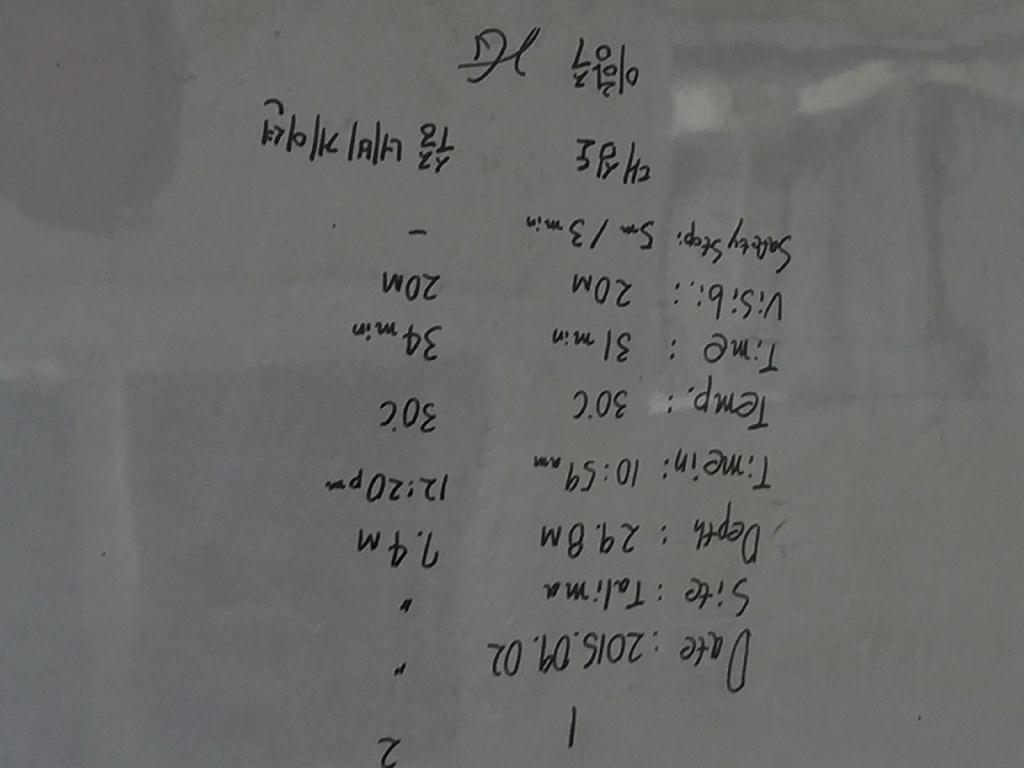 1 2
Date : 2015.09.02 "
Site : Talima "
Depth : 29.8M 7.4M
Time in : 10:59 am 12:20pm
Temp. : 30℃ 30℃
Time : 31 min 34 min
Visibi. : 20M 20M
Safety Stop : 5m / 3 min -
대심도 수중 네비게이션
이학주